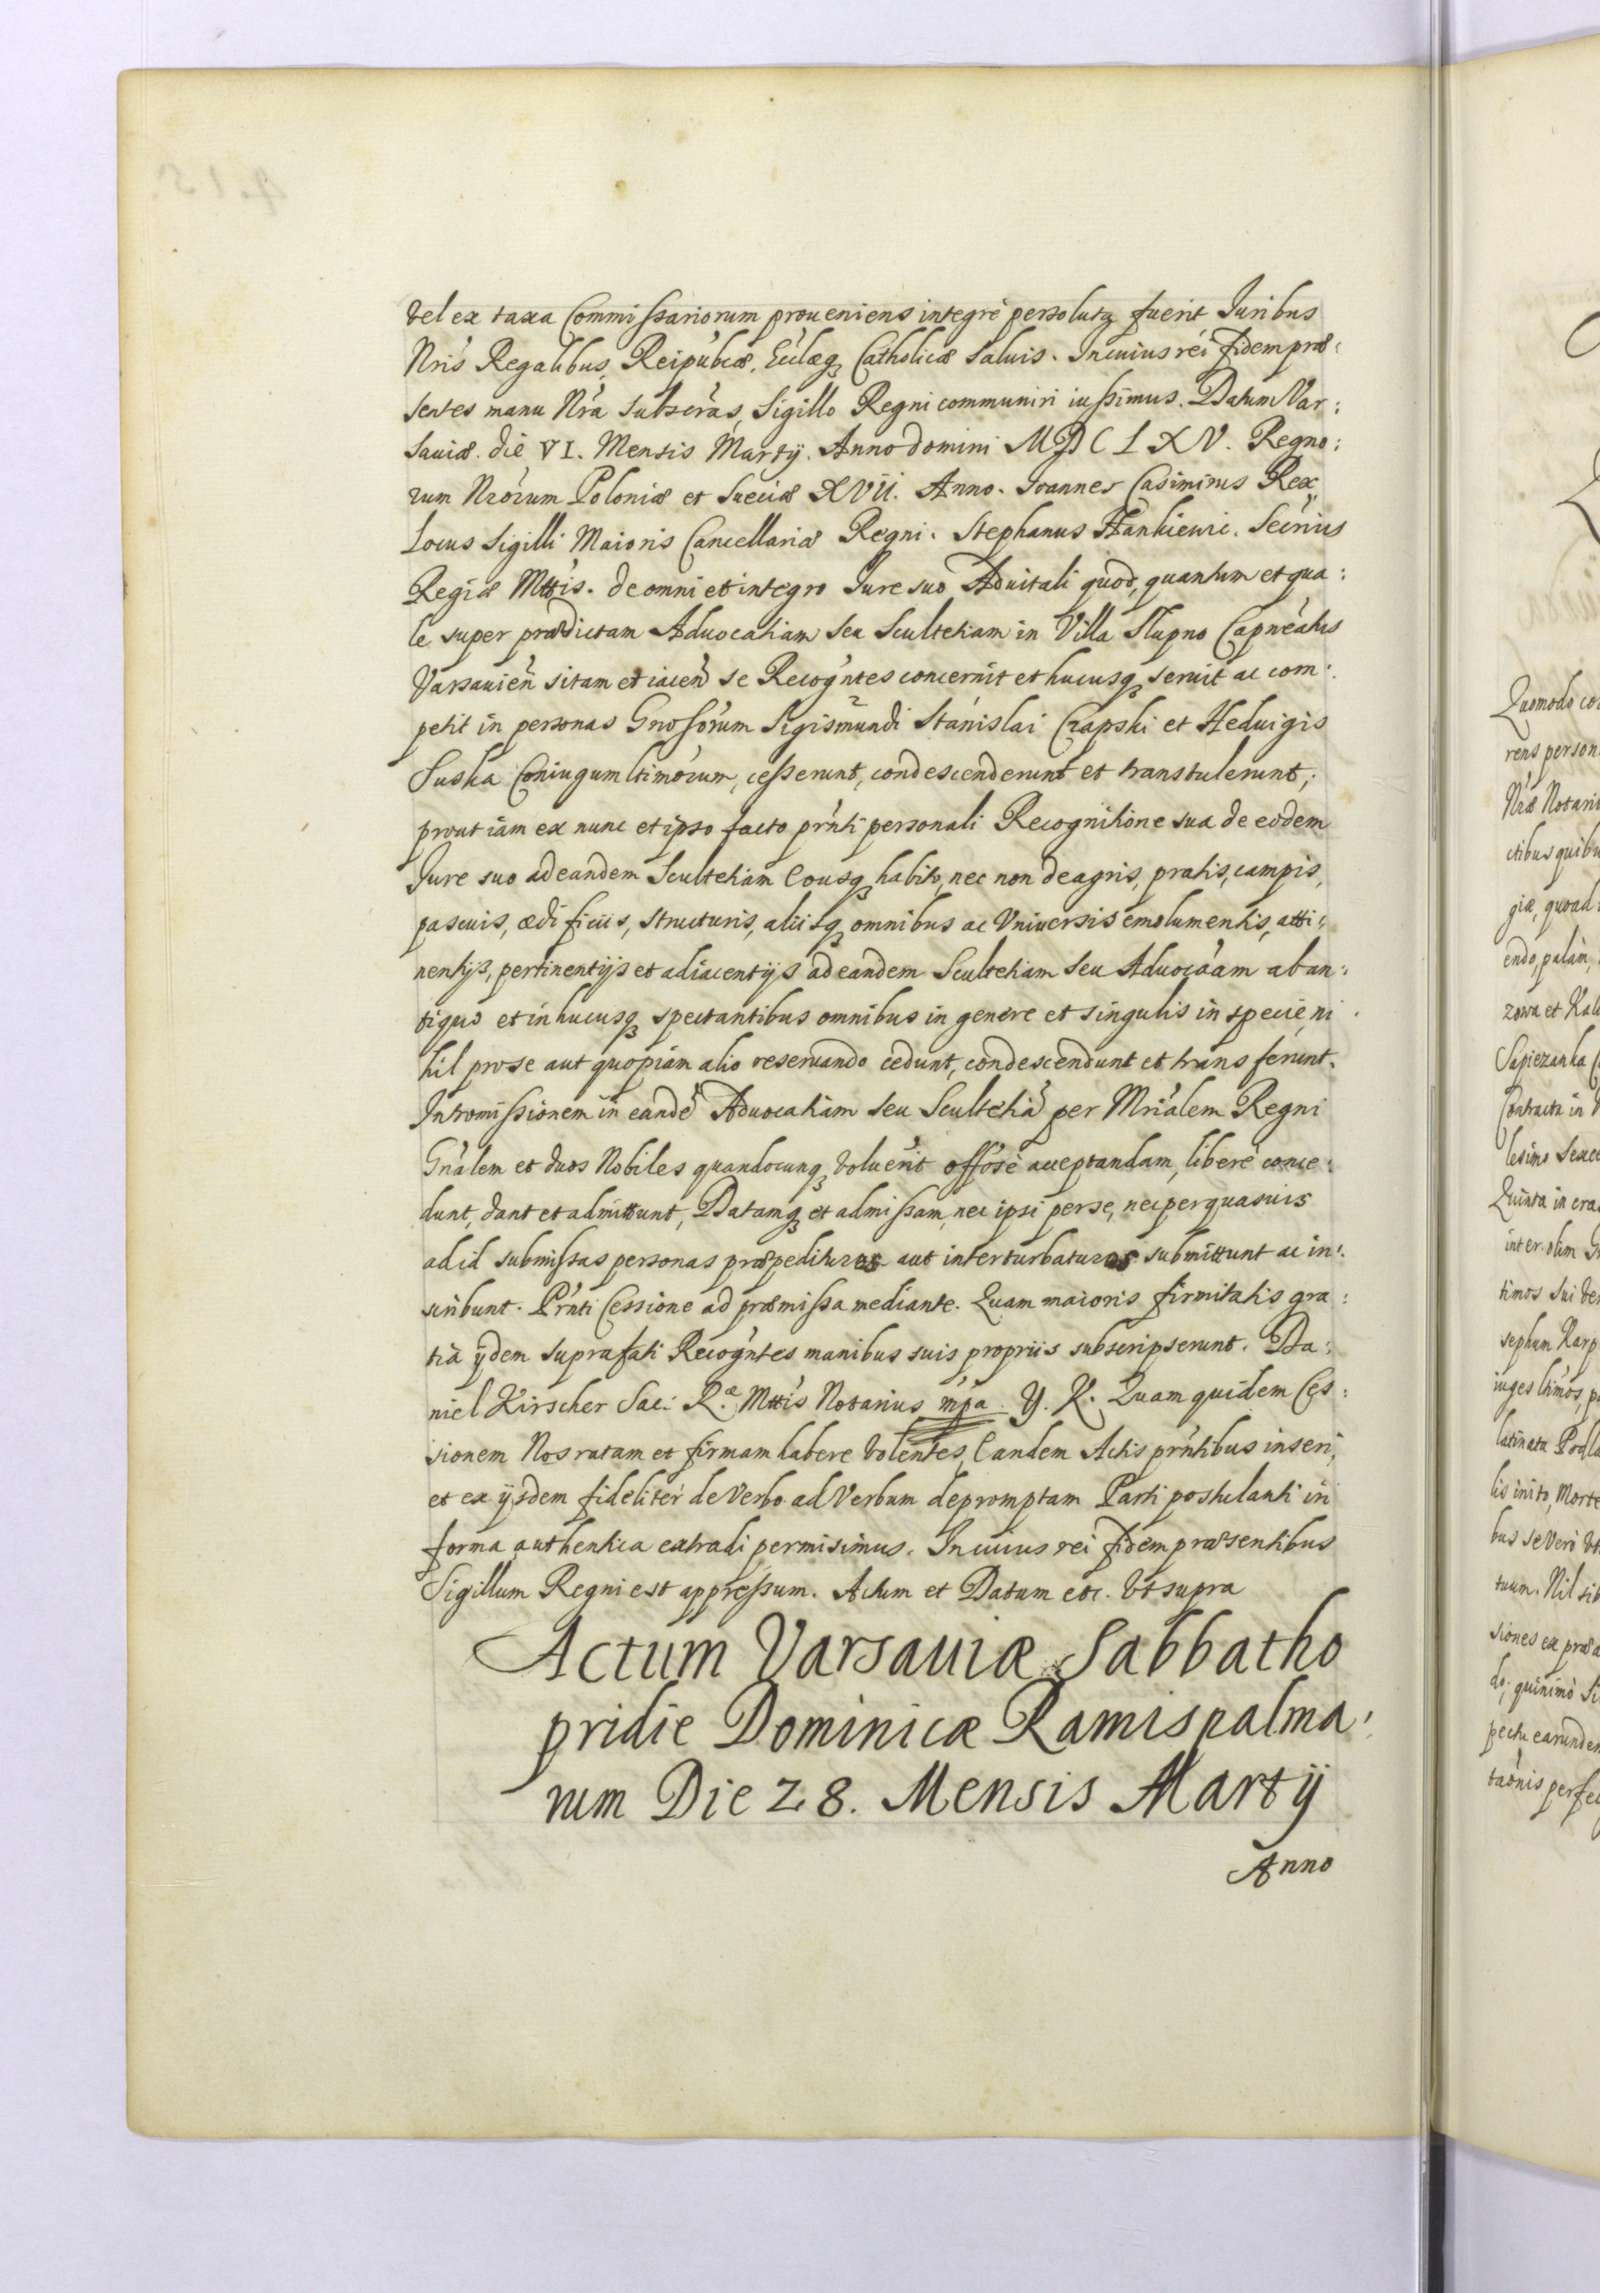 vel ex taxa Commissariorum proueniens integrè persoluta fuerit Iuribus
Nris Regalibus, Reipubcæ, Ecclæq₃ Catholicæ saluis. In cuius rei fidem præ:
sentes manu Nra subscras, Sigillo Regni communiri iussimus. Datum Var:
sauiæ. die VI. Mensis Martij. Anno Domini MDCLXV. Regno:
rum Nrorum Poloniæ et Sueciæ XVII. Anno. Ioannes Casimirus Rex
Locus Sigilli Maioris Cancellariæ Regni. Stephanus Hankiewic. Secrius
Regiæ Mttis. de omni et integro Iure suo Aduitali quod, quantum et qua:
le super prædictam Aduocatiam seu Scultetiam in Villa Słupno Capneatus
Varsauien sitam et iacen se Recogntes concernit et hucusq₃ seruit ac com:
petit in personas Gnosorum Sigismundi Stanislai Czapski et Heduigis
Suska Coniugum ltimorum, cesserunt, condescenderunt et transtulerunt,
prout iam ex nunc et ipso facto prnti personali Recognitione sua de eodem
Iure suo ad eandem Scultetiam eousq₃ habito, nec non de agris, pratis, campis,
pascuis, ædificiis, structuris, aliisq₃ omnibus ac Vniuersis emolumentis, atti:
nentijs, pertinentijs et adiacentijs ad eandem Scultetiam seu Aduocaam ab an:
tiquo et in hucusq₃ spectantibus omnibus in genere et singulis in specie, ni
hil pro se aut quopiam alio reseruando cedunt, condescendunt et transferunt.
Intromissionem in eande Aduocatiam seu Scultetia per Mrialem Regni
Gnalem et duos Nobiles quandocunq₃ voluerit offose acceptandam, liberè conce:
dunt, dant et admittunt, Datamq₃ et admissam, nec ipsi per se, nec per quasuis
ad id submissas personas præpedituros aut interturbaturos submittunt ac in:
scribunt. Prnti Cessione ad præmissa mediante. Quam maioris firmitatis gra:
tia ijdem suprafati Recogntes manibus suis propriis subscripserunt. Da:
niel Kirscher Sac: R.æ Mttis Notarius mpa. Y. K. Quam quidem Ces:
sionem Nos ratam et firmam habere volentes, Eandem Actis prntibus inseri,
et ex ijsdem fideliter de Verbo ad Verbum depromptam Parti postulanti in
forma authentica extradi permisimus. In cuius rei fidem præsentibus
Sigillum Regni est appressum. Actum et Datum etc. vt supra
Actum Varsauiæ Sabbatho
pridie Dominicæ Ramispalma:
rum Die 28. Mensis Martij
Anno
Quomodo co
rens person
Nræ Notari
ctibus quibu
giæ, quoad
endo, palàm,
zowa et Kal
Sapiezanka
Contractu in
lesimo Sexce
Quinta in cra
inter olim G
timos sui
sephum Karp
iuges ltimos, p
latinatu Podla
lis inito, Morte
bus se Vero vt
tuum. Nil sib
siones ex præa
do; quinimò
pectu earundem
taonis perfe